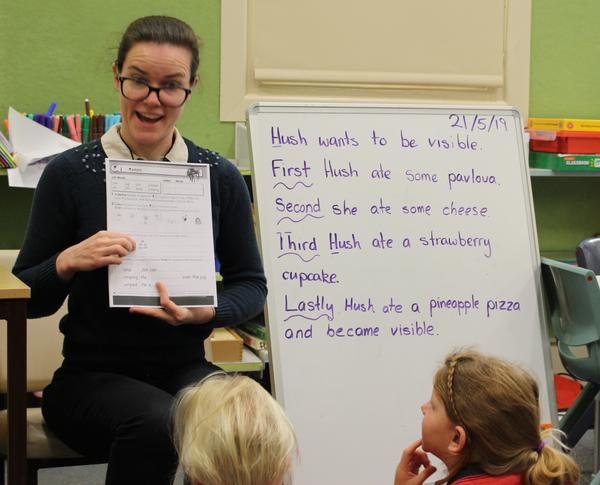 21/5/19
Hush wants to be visible.
First Hush ate some pavlova.
Second she ate some cheese.
Third Hush ate a strawberry
cupcake.
Lastly Hush ate a pineapple pizza
and became visible.